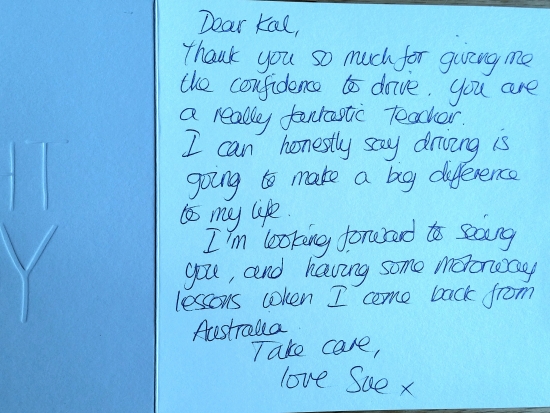 HT
Y
Dear Kal,
Thank you so much for giving me
the confidence to drive. You are
a really fantastic Teacher.
I can honestly say driving is
going to make a big difference
to my life.
I'm looking forward to seeing
you, and having some motorway
lessons when I come back from
Australia.
Take care,
love Sue x